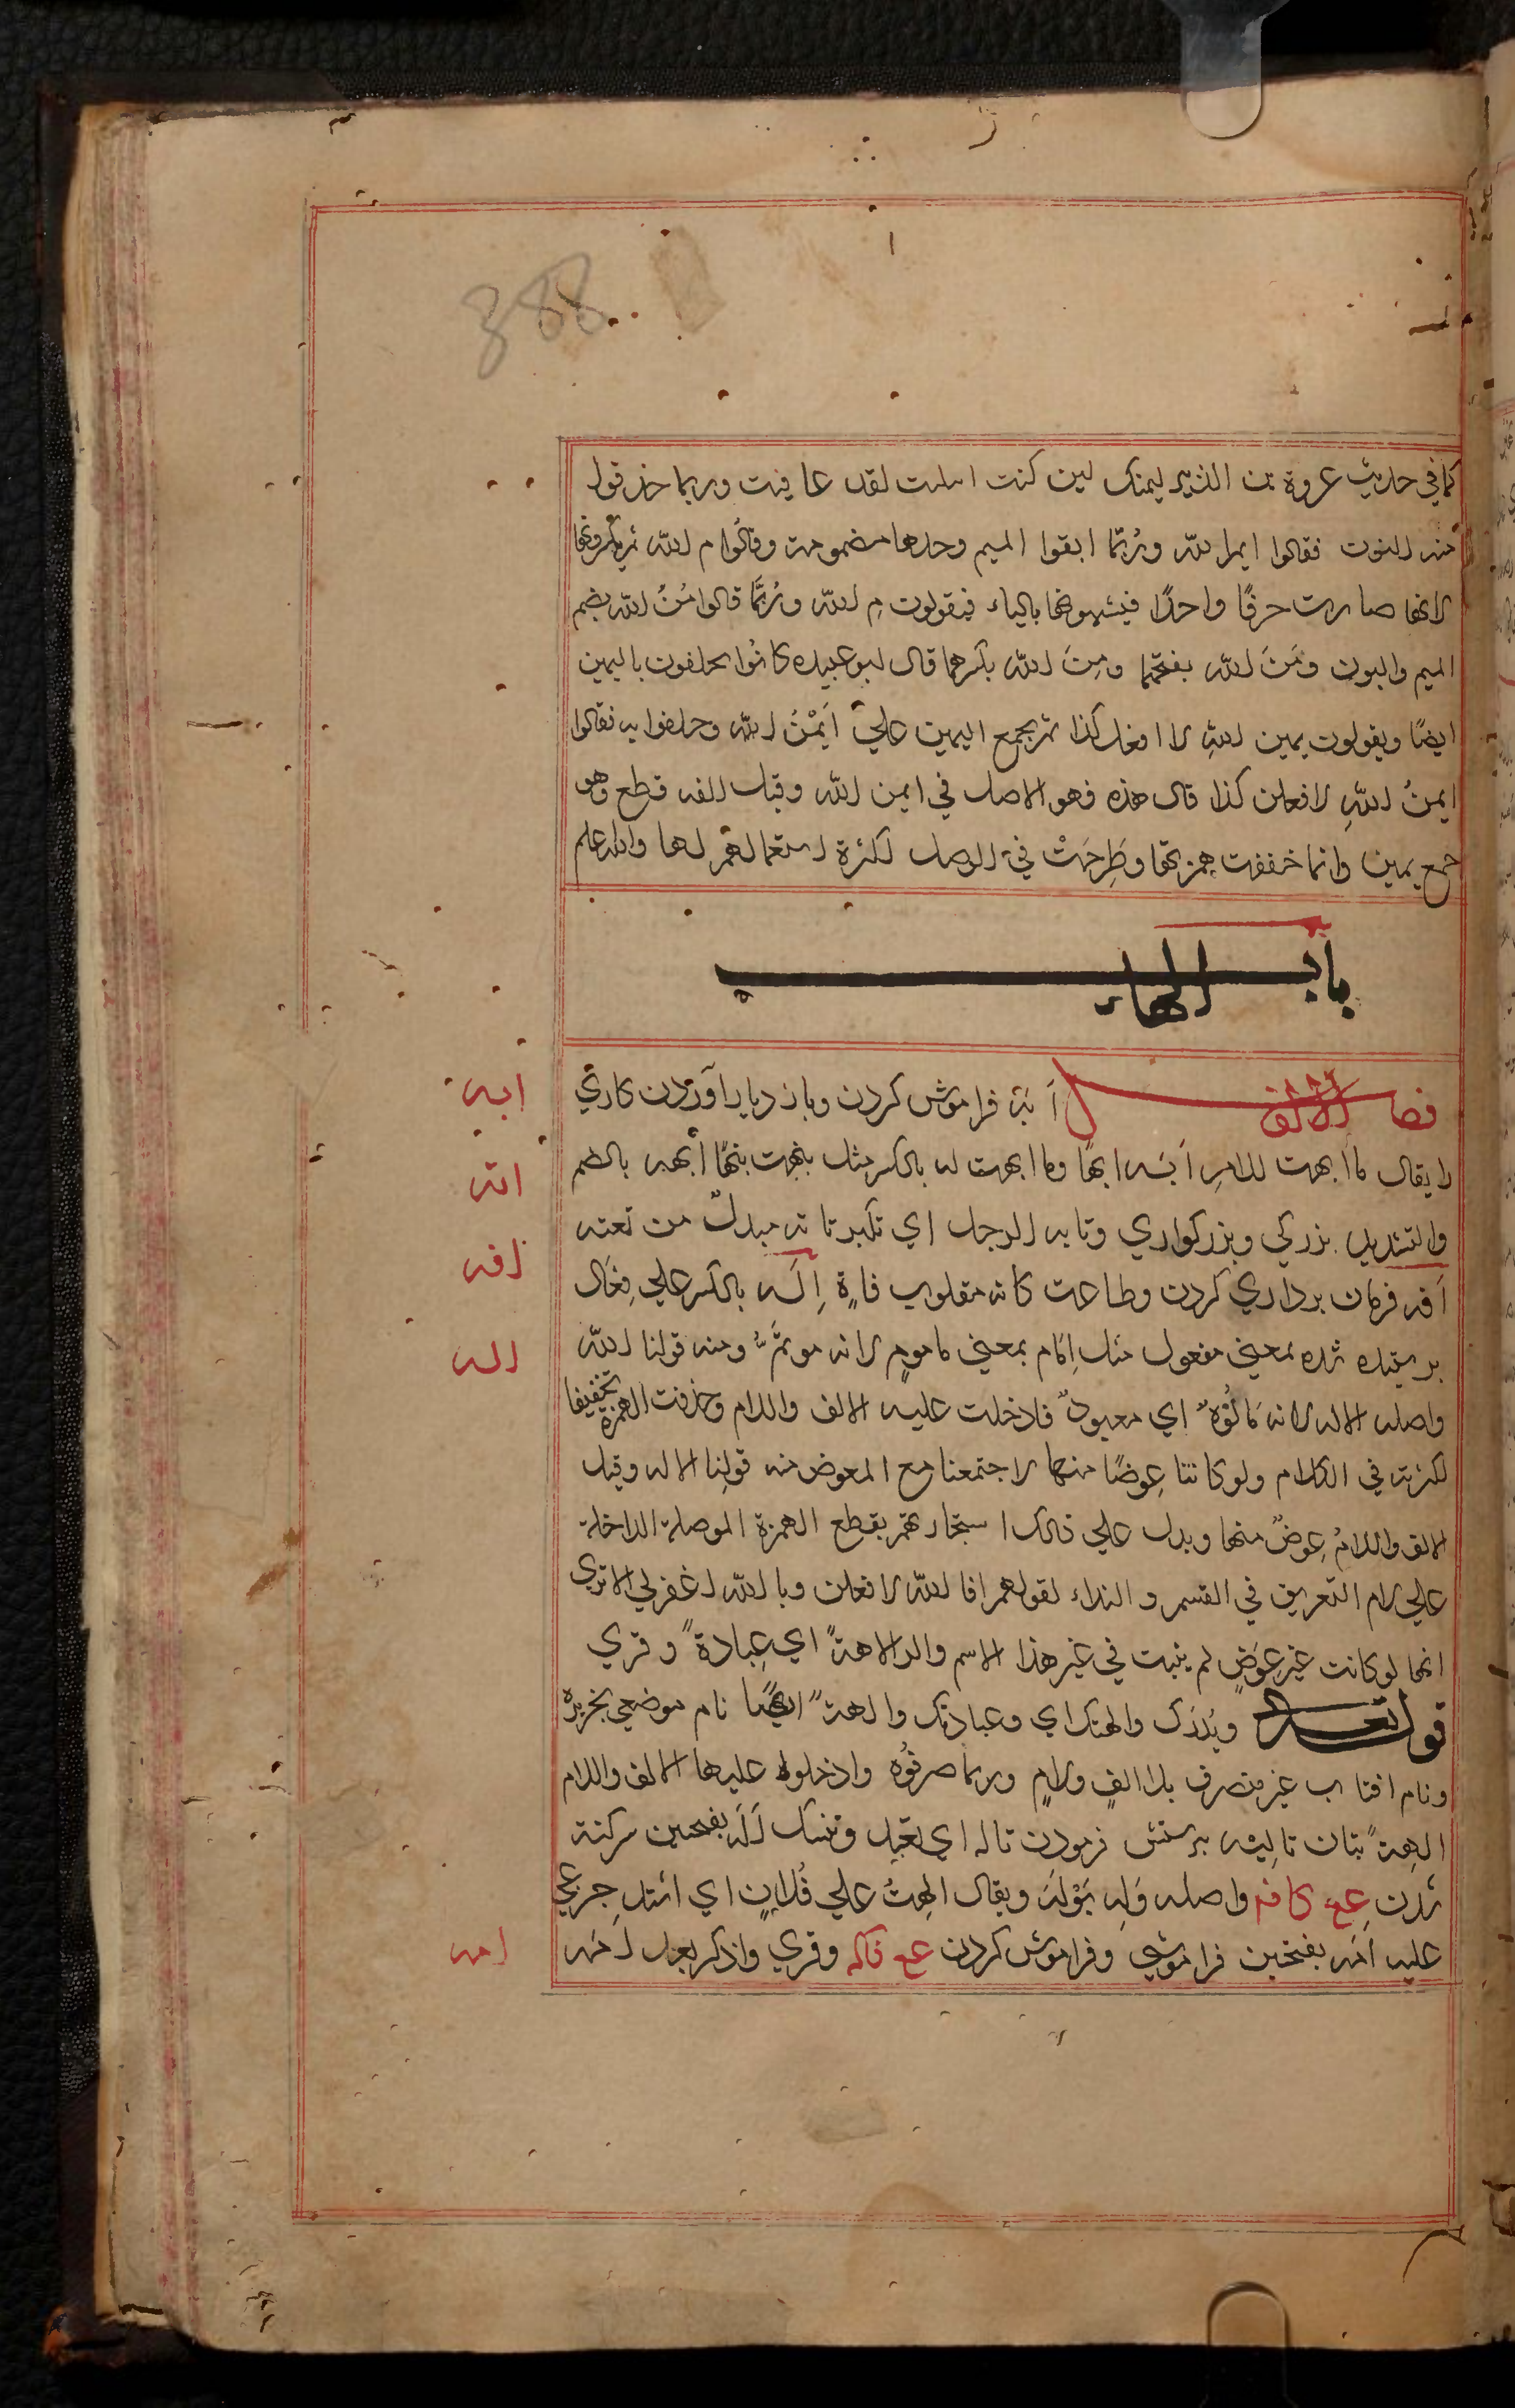 388
كما في حديث عروة بن الزبير ليمنك لين كنت ابليت لقد عافيت وربما حذفوا
منه النون فقالوا ايم الله وربّما ابقوا الميم وحدها مضمومة وقالوا مُ الله ثم يكسرونها
لانها صارت حرفًا واحدًا فيشبهونها بالباء فيقولون مِ الله وربّما قالوا مُنُ الله بضم
الميم والنون ومَنَ الله بفتحهما ومِنِ الله بكسرهما قال ابو عبيده كانوا يحلفون باليمين
ايضًا ويقولون يمين اللهِ لا افعل كذا ثم يجمع اليمين علي اَيْمُنُ الله وحلفوا به فقالوا
ايمنُ اللهِ لافعلن كذا قال هذه فهو الاصل في ايمن الله وقيل الفه قطع وهو
جمع يمين وانما خففت همزتها وطَرِحَتْ في الوصل لكثرة استعمالهم لها والله اعلم
باب الهاء
فصل الالف اَبَهَ فراموش كردن وباز دياد آوردن كاري
ابه
را يقال ما ابهت للامرِ آبَه ابهًا وما ابهت له بالكسر مثل نبهت نبهًا اُبهه بالضم
اته
والتشديد بزركي وبزركواري وتابه الرجل اي تكبر تاته مبدل من تعته
افه
اَفه فرمان برداري كردن وطاعت كانه مقلوب فاة اِلَه بالكسر علي فِعَال
اله
برستيده شده بمعني مفعول مثل اِمَام بمعني ماموم لانه موتمٌّ به ومنه قولنا الله
واصله الاله لانه مَالُوه اي معبود فادخلت عليه الالف واللام وحذفت الهمزة تخفيفا
لكثرته في الكلام ولو كانتا عِوضًا منها لاجتمعتا مع المعوض منه قولنا الاله وقيل
الالف واللامُ عِوضٌ منها ويدل علي ذلك استجازتهم بقطع الهمزة الموصلة الداخلة
علي لام التعريف في القسم والنداء لقولهم افالله لافعلن وبالله اغفرلي الا تري
انها لو كانت غير عِوَضٍ لم يثبت في غير هذا الاسم والالاهة اي عِبادة وقري
قوله تعالي ويُذرَك والهتك اي وعبادتك والهة ايضًا نام موضعي بجزيره
ونام افتاب غير منصرف بلا الفٍ ولامٍ وربما صرفوُه وادخلوا عليها الالف واللام
الهة بتان تاليه برستش فرمودن تاله اي تعبد وتنسك اَلَه بفتحين سركشته
شدن عع كافه واصله وَلِه يَوْلَه ويقال الهتُ علي فُلانٍ اي اشتد جزعي
عليه اَمَه بفتحين فراموشي وفراموش كردن عع فاكه وقري واذكر بعد امَه
امه